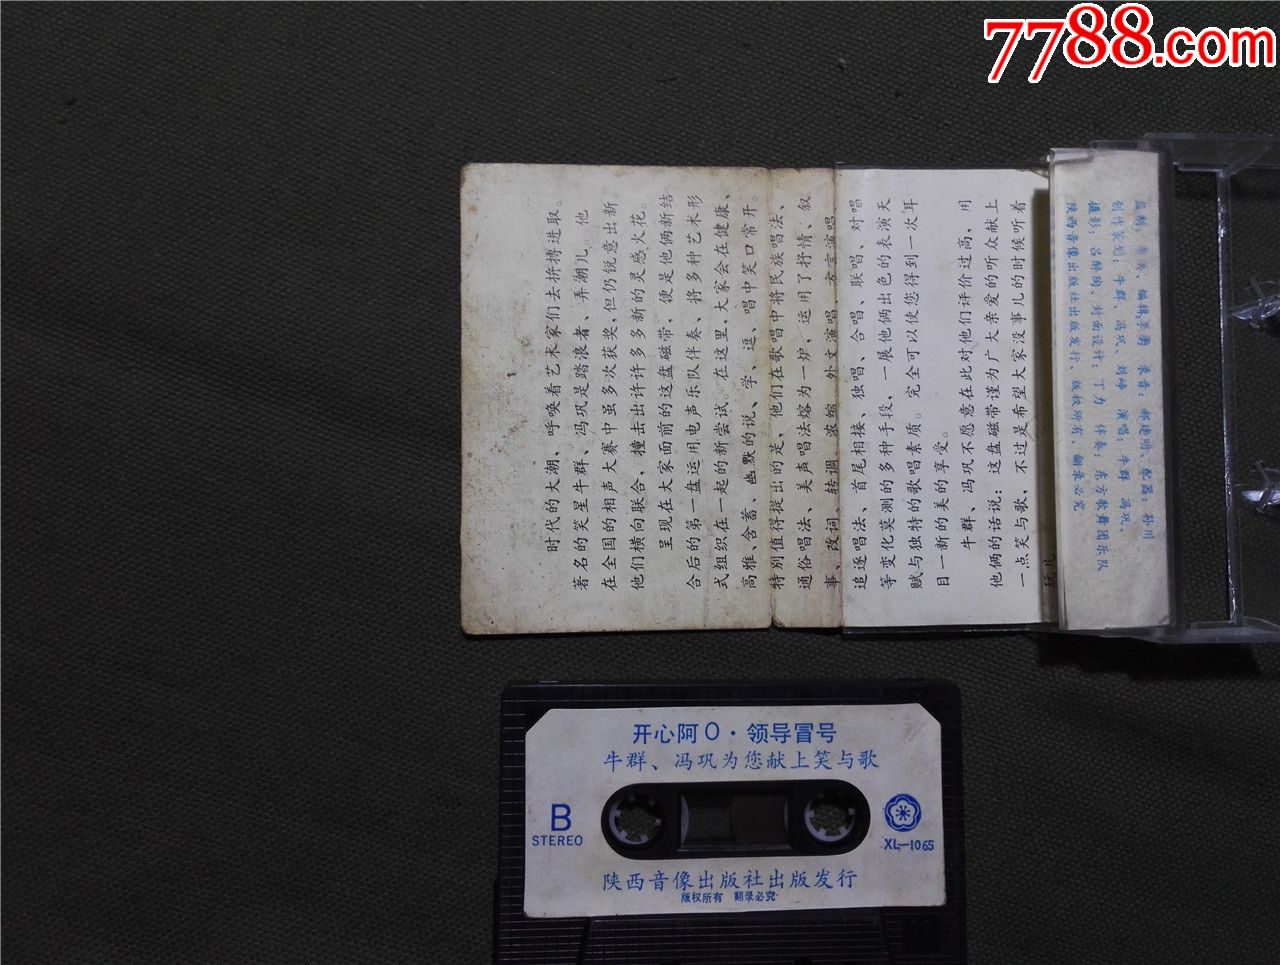 7788.com
时代的大潮，呼唤着艺术家们去拚搏进取。
著名的笑星牛群、冯巩是踏浪者、弄潮儿。他
在全国的相声大赛中虽多次获奖，但仍锐意出新，
他们横向联合，撞击出许许多多新的灵感火花。
呈现在大家面前的这盘磁带，便是他俩新结
合后的第一盘运用电声乐队伴奏、将多种艺术形
式组织在一起的新尝试。在这里，大家会在健康、
高雅、含蓄、幽默的说、学、逗、唱中笑口常开。
特别值得提出的是，他们在歌唱中将民族唱法、
通俗唱法、美声唱法熔为一炉，运用了抒情、叙
事、改词、转调、浓缩、外文演唱、方言演唱
追逐唱法、首尾相接、独唱、合唱、联唱、对唱
等变化莫测的多种手段，一展他俩出色的表演天
赋与独特的歌唱素质。完全可以使您得到一次耳
目一新的美的享受。
牛群、冯巩不愿意在此对他们评价过高，用
他俩的话说：这盘磁带谨为广大亲爱的听众献上
一点笑与歌，不过是希望大家没事儿的时候听着
玩儿
录音：郝建明、配器：孙川
创作策划：牛群、冯巩、刘峰 演唱：牛群 冯巩、
摄影：吕 封面设计：丁力 伴奏：东方歌舞团乐队
陕西音像出版社出版发行、版权所有，翻录必究
开心阿O·领导冒号
牛群、冯巩为您献上笑与歌
B
STEREO
XL—1065
陕西音像出版社出版发行
版权所有 翻录必究